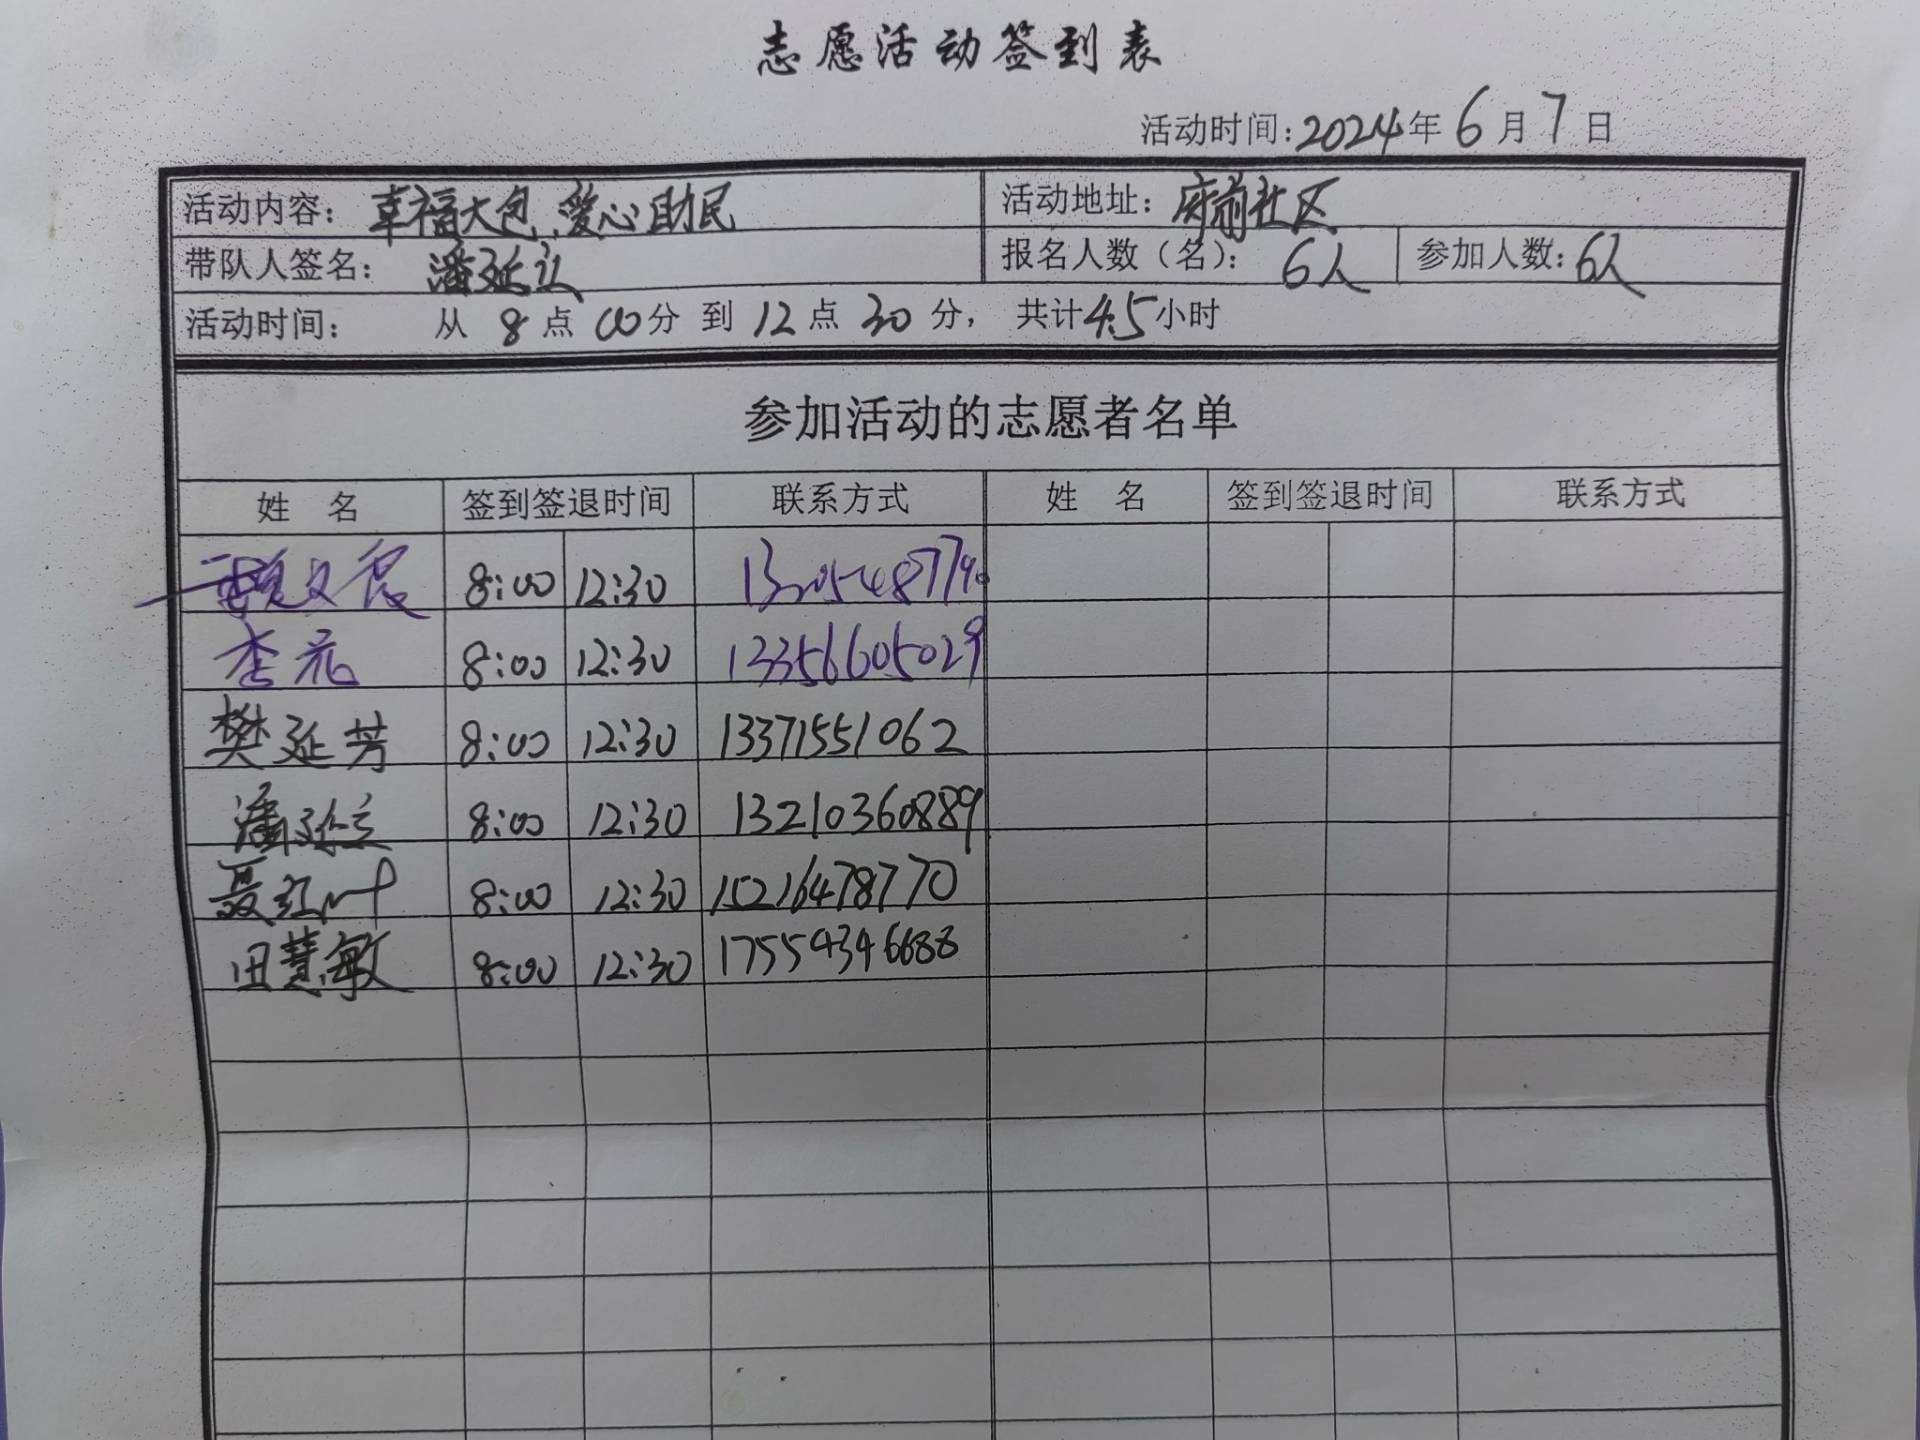 志愿活动签到表
活动时间:2024年6月7日
活动内容: 幸福大包、爱心助民 活动地址: 府前社区
带队人签名: 潘延立 报名人数(名): 6人 参加人数: 6人
活动时间: 从 8 点 00 分 到 12 点 30 分, 共计4.5小时
参加活动的志愿者名单
姓 名 签到签退时间 联系方式 姓 名 签到签退时间 联系方式
8:00 12:30
李元 8:00 12:30 13356605029
樊延芳 8:00 12:30 13371551062
潘延立 8:00 12:30 13210360889
聂红叶 8:00 12:30 15216478770
田慧敏 8:00 12:30 17554346688